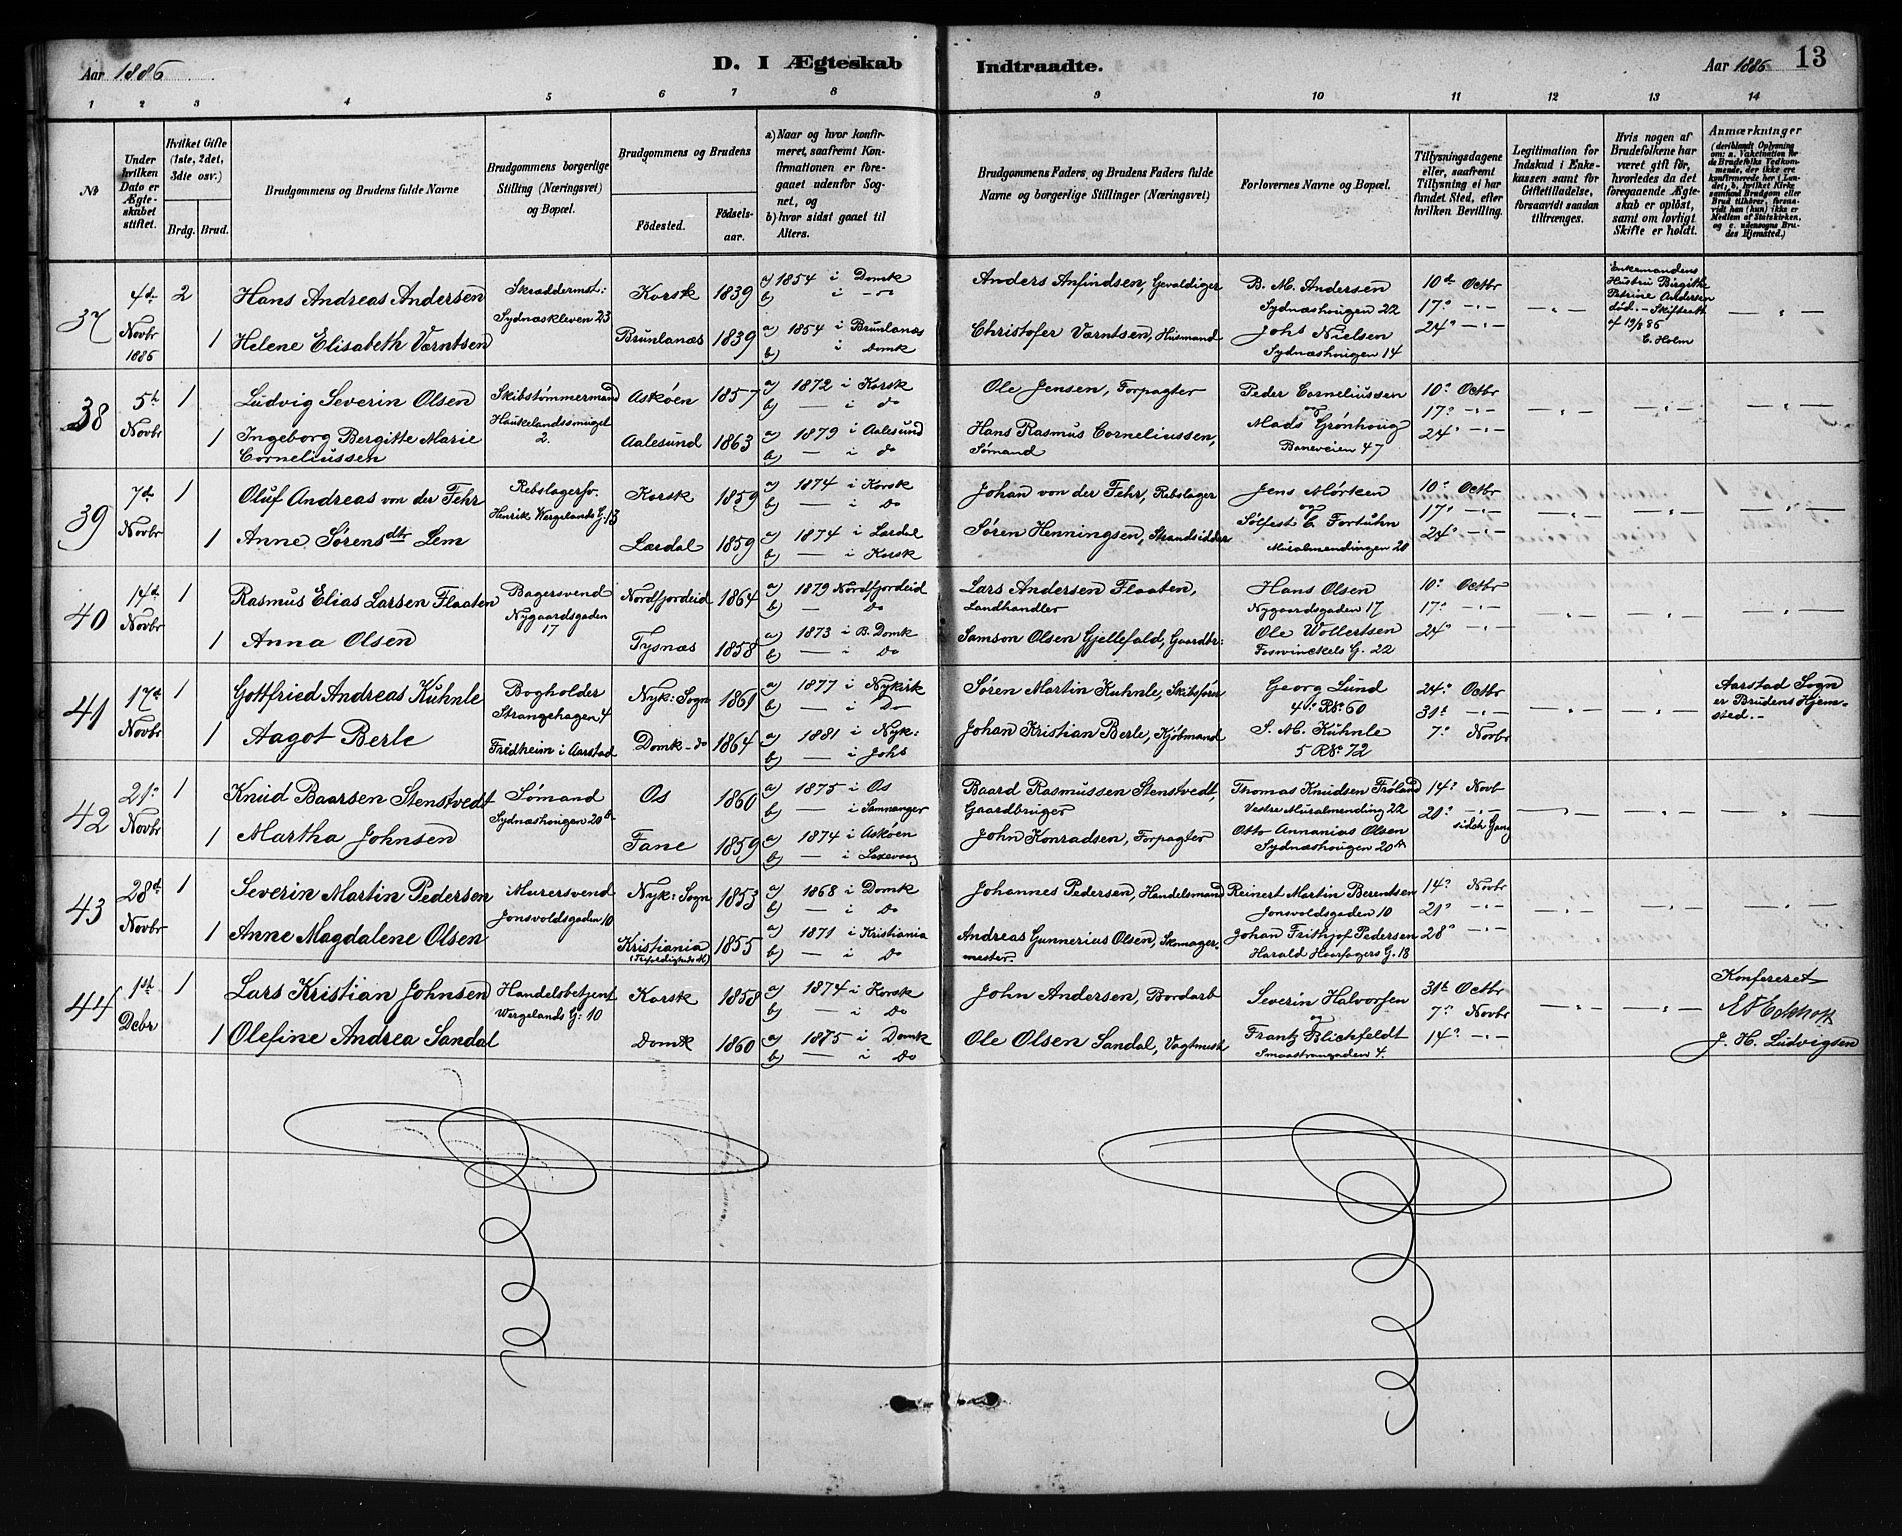 Aar 1886
D. I Ægteskab Indtraadte.
Aar 1886 13
1 2 3 4 5 6 7 8 9 10 11 12 13 14
No
Under hvilken Dato er Ægteskabet stiftet.
Hvilket Gifte (1ste, 2det, 3die osv.)
Brdg. Brud.
Brudgommens og Brudens fulde Navne
Brudgommens borgerlige Stilling (Næringsvei) og Bopæl.
Brudgommens og Brudens
Fødested.
Fødselsaar.
a) Naar og hvor konfirmeret, saafremt Konfirmationen er foregaaet udenfor Sognet, og
b) hvor sidst gaaet til Alters.
Brudgommens Faders, og Brudens Faders fulde Navne og borgerlige Stillinger (Næringsvei)
Forlovernes Navne og Bopæl.
Tillysningsdagene eller, saafremt Tillysning ei har fundet Sted, efter hvilken Bevilling.
Legitimation for Indskud i Enkekassen samt for Giftetilladelse, forsaavidt saadan tiltrænges.
Hvis nogen af Brudefolkene har været gift før, hvorledes da det foregaaende Ægteskab er opløst, samt om lovligt Skifte er holdt.
Anmærkninger (deriblandt Oplysning om: a. Vakcination for de Brudefolks Vedkommende, der ikke ere konfirmerede her i Landet; b, hvilket Kirkesamfund Brudgom eller Brud tilhører, forsaavidt han (hun) ikke er Medlem af Statskirken, og c. udensogns Brudes Hjemsted.)
37 4de Novbr 1886 2 Hans Andreas Andersen Skræddermst: Sydnæskleven 23 Korsk 1839 a) 1854 i Domk b) i — do Anders Anfindsen, Gevaldiger B. M. Andersen Sydnæshougen 22 10de Octbr 17° -"- 24° -"- Enkemandens Hustru Birgithe Petrine Andersen død. - Skifteatt af 19/8 86 C. Holm
1 Helene Elisabeth Værntsen Brunlanæs 1839 a) 1854 i Brunlanæs b) i Domk Christofer Værntsen, Husmand Johs Nielsen Sydnæshougen 14
38 5te Novbr 1 Ludvig Severin Olsen Skibstømmermand Haukelandssmuget 2. Askøen 1857 a) 1872 i Korsk b) — i do Ole Jensen, Forpagter Peder Corneliussen og 10° Octbr 17° -"- 24° -"-
1 Ingeborg Bergitte Marie Corneliussen Aalesund 1863 a) 1879 i Aalesund b) — i do Hans Rasmus Corneliussen, Sømand Mads Grønhoug Baneveien 47
39 7de Novbr 1 Oluf Andreas von der Fehr Rebslagersv. Henrik Wergelands G. 13 Korsk 1859 a) 1874 i Korsk b) — i Do Johan von der Fehr, Rebslager Jens Mørken og 10° Octbr 17° -"- 24° -"-
1 Anne Sørensdtr Lem Lærdal 1859 a) 1874 i Lærdal b) — i Korsk Søren Henningsen, Strandsidder Sølfest E. Fortuhn Muralmendingen 20
40 14de Novbr 1 Rasmus Elias Larsen Flaaten Bagersvend Nygaardsgaden 17 Nordfjordeid 1864 a) 1879 Nordfjordeid b) — Do Lars Andersen Flaaten, Landhandler Hans Olsen Nygaardsgaden 17 10° Octbr 17° -"- 24° -"-
1 Anna Olsen Tysnæs 1858 a) 1873 i B. Domk b) — i Do Samson Olsen Gjellefald, Gaardbr: Ole Wollertsen Fosvinckels G. 22
41 17de Novbr 1 Gottfried Andreas Kuhnle Bogholder Strangehagen 4 Nyk: Sogn 1861 a) 1877 i Nykirk b) — i Do Søren Martin Kuhnle, Skibsfører Georg Lund 4de R. No 60 24° Octbr 31te -"- 7° Novbr Aarstad Sogn er Brudens Hjemsted. -
1 Aagot Berle Fredheim i Aarstad Domk - do 1864 a) 1881 i Nyk: b) — i Johs Johan Kristian Berle, Kjøbmand S. M. Kuhnle 5 R No 72
42 21° Novbr 1 Knud Baarsen Stenstvedt Sømand Sydnæshougen 20 B. Os 1860 a) 1875 i Os b) — i Samnanger Baard Rasmussen Stenstvedt, Gaardbruger Thomas Knudsen Frøland Vestre Muralmending 22 14° Novb 21° -"- sidste Gang
1 Martha Johnsen Fane 1859 a) 1874 i Askøen b) — i Lexevaag John Konradsen, Forpagter Otto Annanias Olsen Sydnæshougen 20 A
43 28de Novbr 1 Severin Martin Pedersen Murersvend Jonsvoldsgaden 10 Nyk: Sogn 1853 a) 1868 i Domk b) — i Do Johannes Pedersen, Handelsmand Reinert Martin Berentsen Jonsvoldsgaden 10 14° Novbr 21° -"- 28° -"-
1 Anne Magdalene Olsen Kristiania 1855 a) 1871 i Kristiania b) — i Do Andreas Gunnerius Olsen, Skomagermester. Johan Frithjof Pedersen Harald Haarfagers G. 18
44 1ste Debr 1 Lars Kristian Johnsen Handelsbetjent Wergelands G: 10 Korsk 1858 a) 1874 i Korsk b) — i Do John Andersen, Bordarb Severin Halvorsen og 31te Octbr 7° Novbr 14° -"- Konfereret
1 Olefine Andrea Sandal Domk 1860 a) 1875 i Domk b) — i Do Ole Olsen Sandal, Vagtmestr Frantz Blichfeldt Smaastrangaden 4. J. H. Ludvigsen